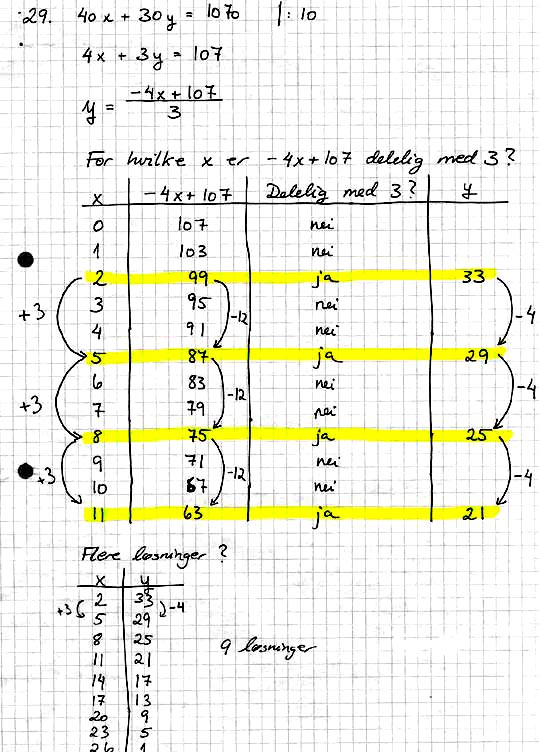 29. 40x + 30y = 1070 |: 10
4x + 3y = 107
y = (-4x + 107)/3
For hvilke x er -4x + 107 delelig med 3?
x -4x + 107 Delelig med 3? y
0 107 nei
1 103 nei
2 99 ja 33
3 95 nei
4 91 nei
+3 -12 -4
5 87 ja 29
6 83 nei
7 79 nei
+3 -12 -4
8 75 ja 25
9 71 nei
10 67 nei
+3 -12 -4
11 63 ja 21
Flere løsninger?
x y
2 33
+3 -4
5 29
8 25
11 21
9 løsninger
14 17
17 13
20 9
23 5
26 1